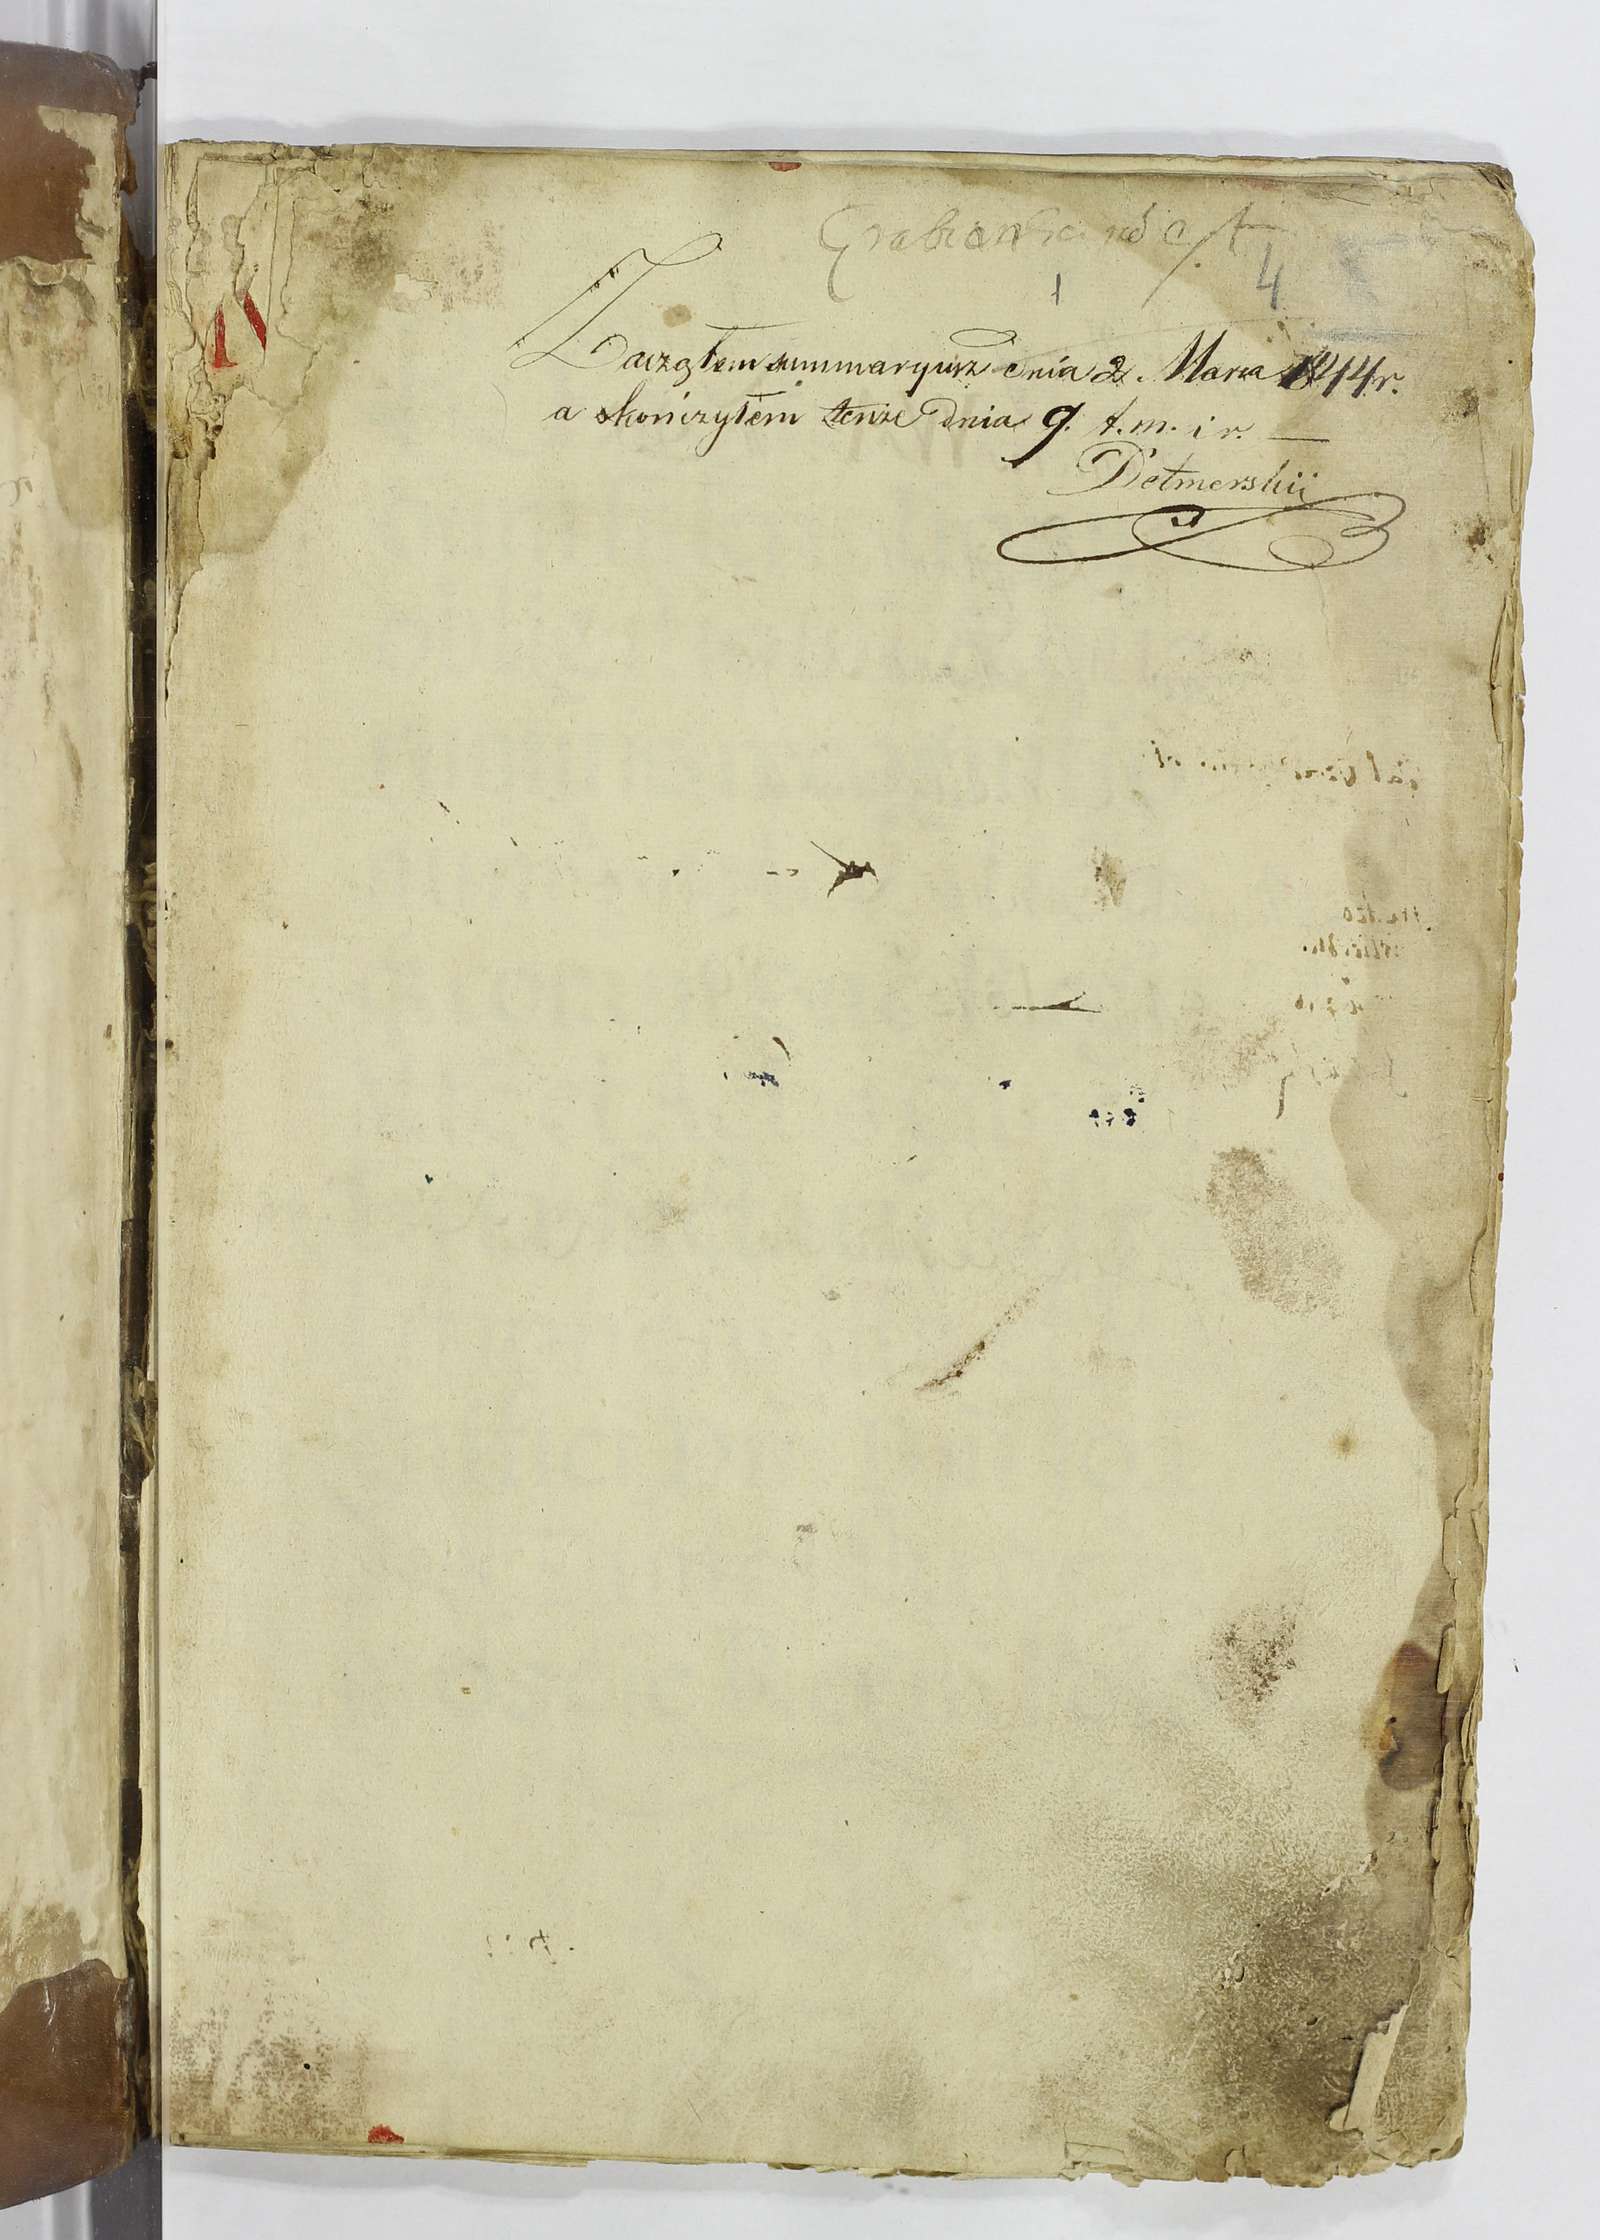 4
1
Zacząłem summaryusz dnia 2. Marca 1844 r.
a skończyłem tenże dnia 9. t. m. i r. —
Detmerskii